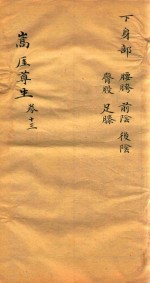 下身部
腰胯 前陰 後陰
臀股 足膝
嵩厓尊生 卷十三